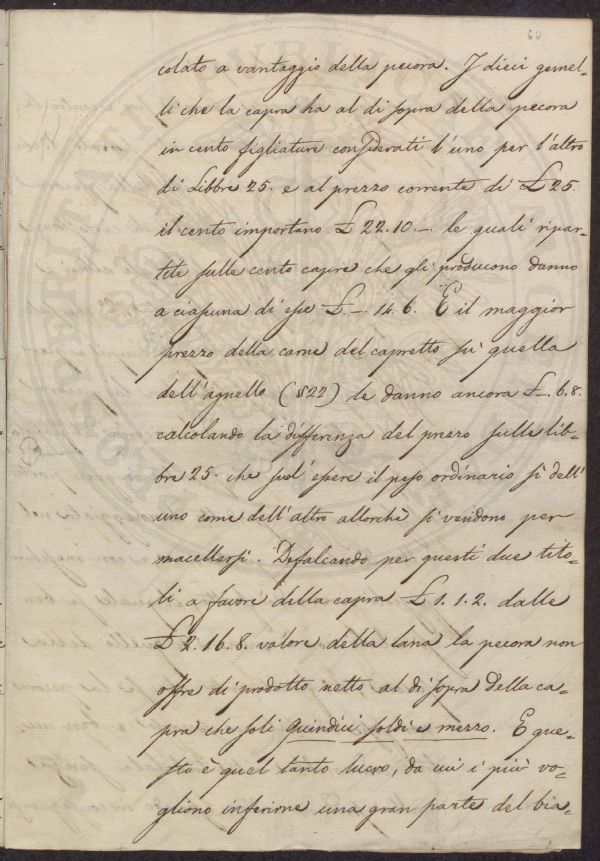 40
colato a vantaggio della pecora. I dieci gemel-
li che la capra ha al di sopra della pecora
in cento figliature considerati l'uno per l'altro
di Libbre 25. e al prezzo corrente di £ 25.
il cento importano £ 22.10.— le quali ripar-
tite sulle cento capre che gli producono danno
a ciascuna di esse £. —. 14. 6. E il maggior
prezzo della carne del capretto su quella
dell'agnello (§22) le danno ancora £ —. 6. 8.
calcolando la differenza del prezzo sulle lib-
bre 25. che suol' essere il peso ordinario sì dell'
uno come dell'altro allorchè si vendono per
macellarsi. Defalcando per questi due tito-
li a favore della capra £ 1. 1. 2. dalle
£ 2. 16. 8. valore della lana la pecora non
offre di prodotto netto al di sopra della ca-
pra che soli quindici soldi e mezzo. E que-
sto è quel tanto lucro, da cui i più vo-
gliono inferirne una gran parte del bia-